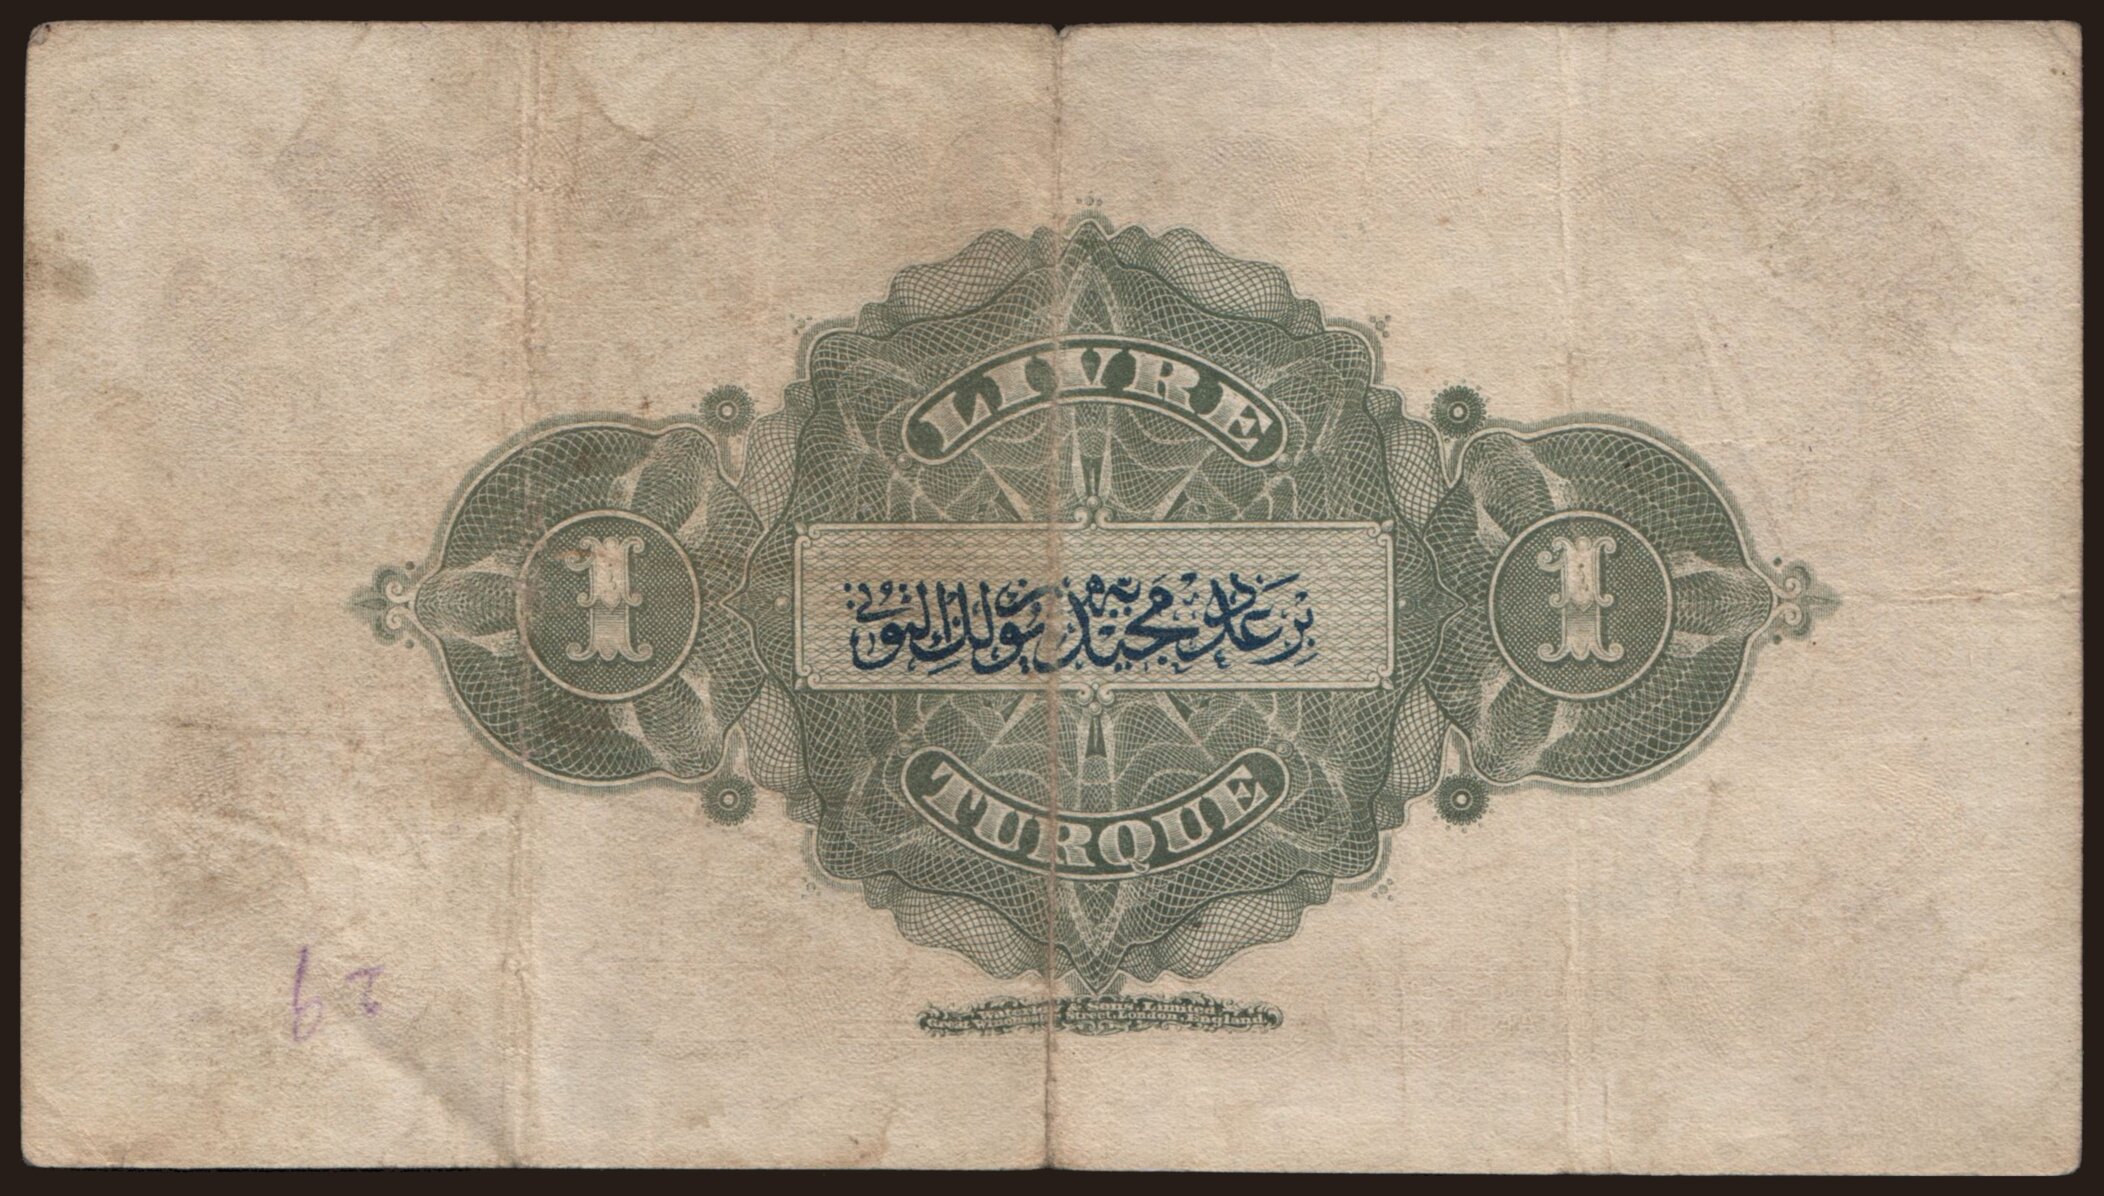 LIVRE
1 بر عدد مجيديه يوزلك التونى 1
TURQUE
Waterlow & Sons, Limited,
Great Winchester Street, London, England.